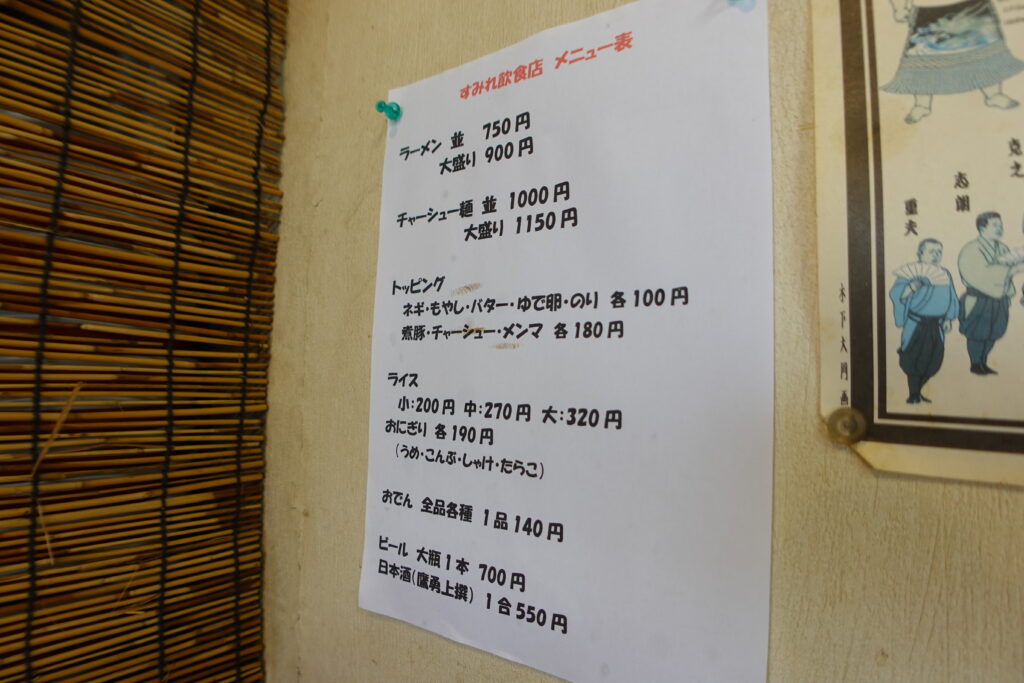 すみれ飲食店 メニュー表
ラーメン 並 750円
大盛り 900円
チャーシュー麺 並 1000円
大盛り 1150円
トッピング
ネギ・もやし・バター・ゆで卵・のり 各100円
煮豚・チャーシュー・メンマ 各180円
ライス
小:200円 中:270円 大:320円
おにぎり 各190円
(うめ・こんぶ・しゃけ・たらこ)
おでん 全品各種 1品140円
ビール 大瓶1本 700円
日本酒(鷹勇上撰) 1合550円
克之
志朗
重夫
木下大門画